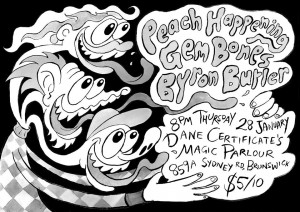 Peach Happening
Gem Bones
Byron Butler
8PM THURSDAY 28 JANUARY
DANE CERTIFICATE'S
MAGIC PARLOUR
859A SYDNEY RD, BRUNSWICK
$5/10